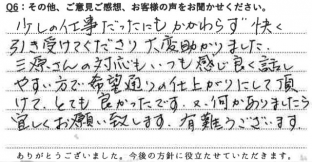 Q6：その他、ご意見ご感想、お客様の声をお聞かせください。
少しの仕事だったにもかかわらず快く
引き受けてくださり大変助かりました。
三源さんの対応もいつも感じ良く話し
やすい方で希望通りの仕上がりにして頂
けて、とても良かったです。又、何かありましたら
宜しくお願い致します。有難うございます。
ありがとうございました。今後の方針に役立たせていただきます。